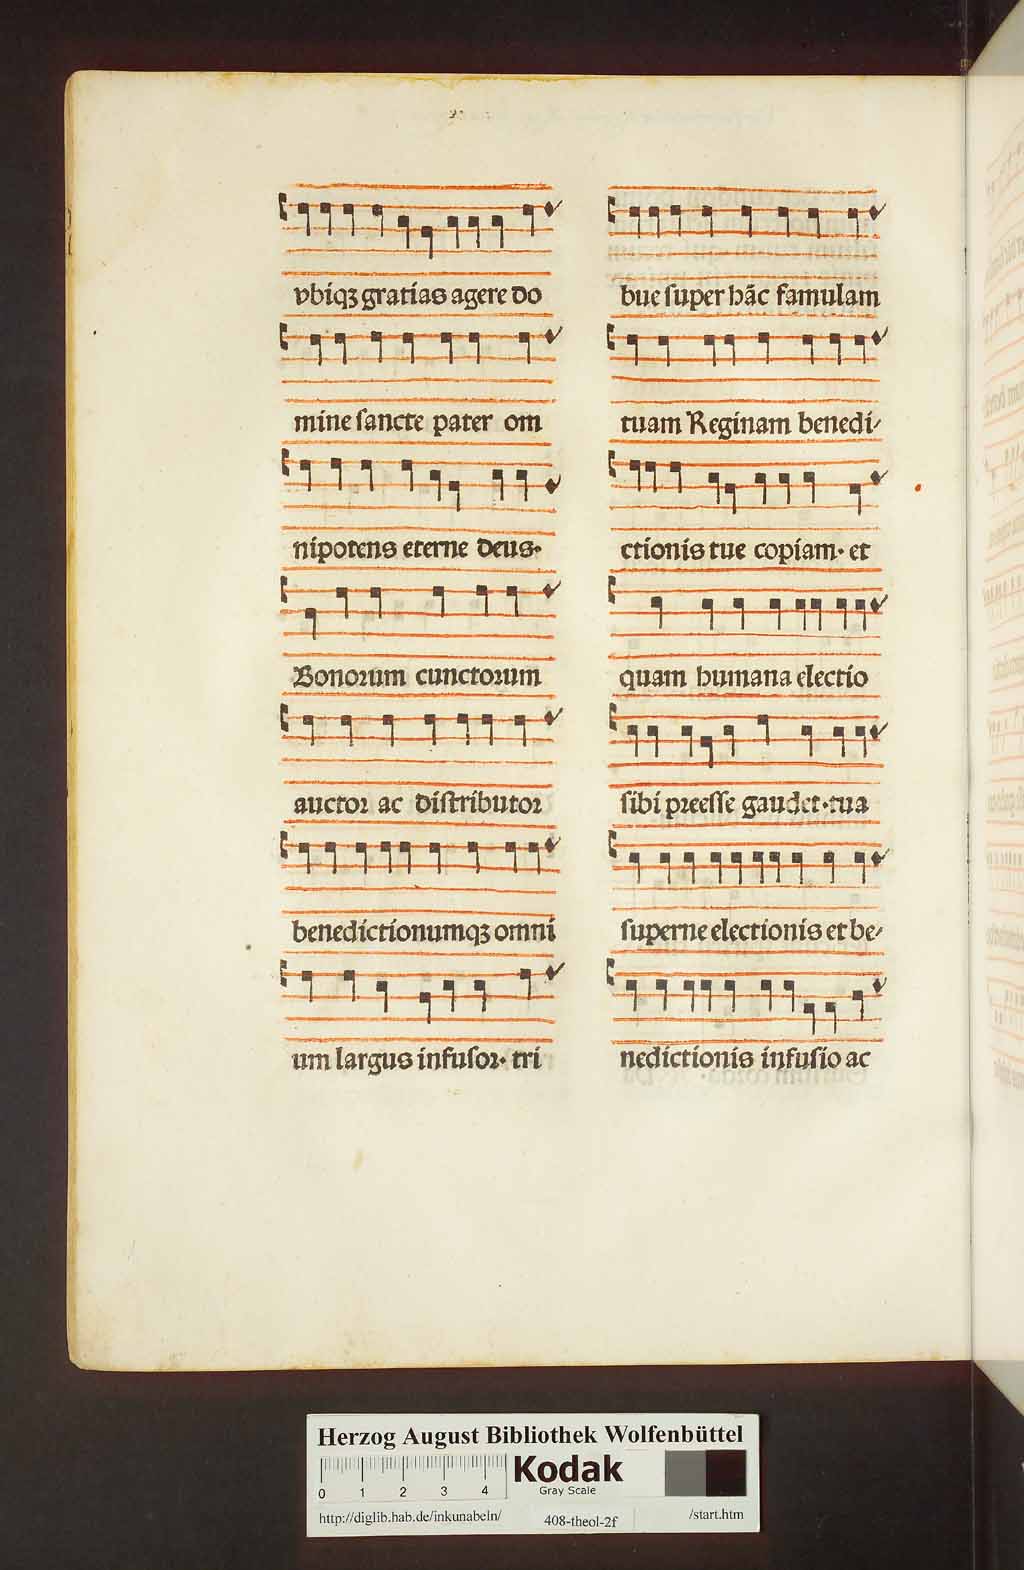 vbiqꝫ gratias agere do
mine ſancte pater om
nipotens eterne deus·
Bonoꝛum cunctoꝛum
auctoꝛ ac diſtributoꝛ
benedictionumqꝫ omni
um largus infuſoꝛ· tri
bue ſuper hãc famulam
tuam Reginam benedi⸗
ctionis tue copiam· et
quam humana electio
ſibi preeſſe gaudet·tua
ſuperne electionis et be⸗
nedictionis infuſio ac
Herzog August Bibliothek Wolfenbüttel
0 1 2 3 4
Kodak
Gray Scale
http://diglib.hab.de/inkunabeln/ 408-theol-2f /start.htm